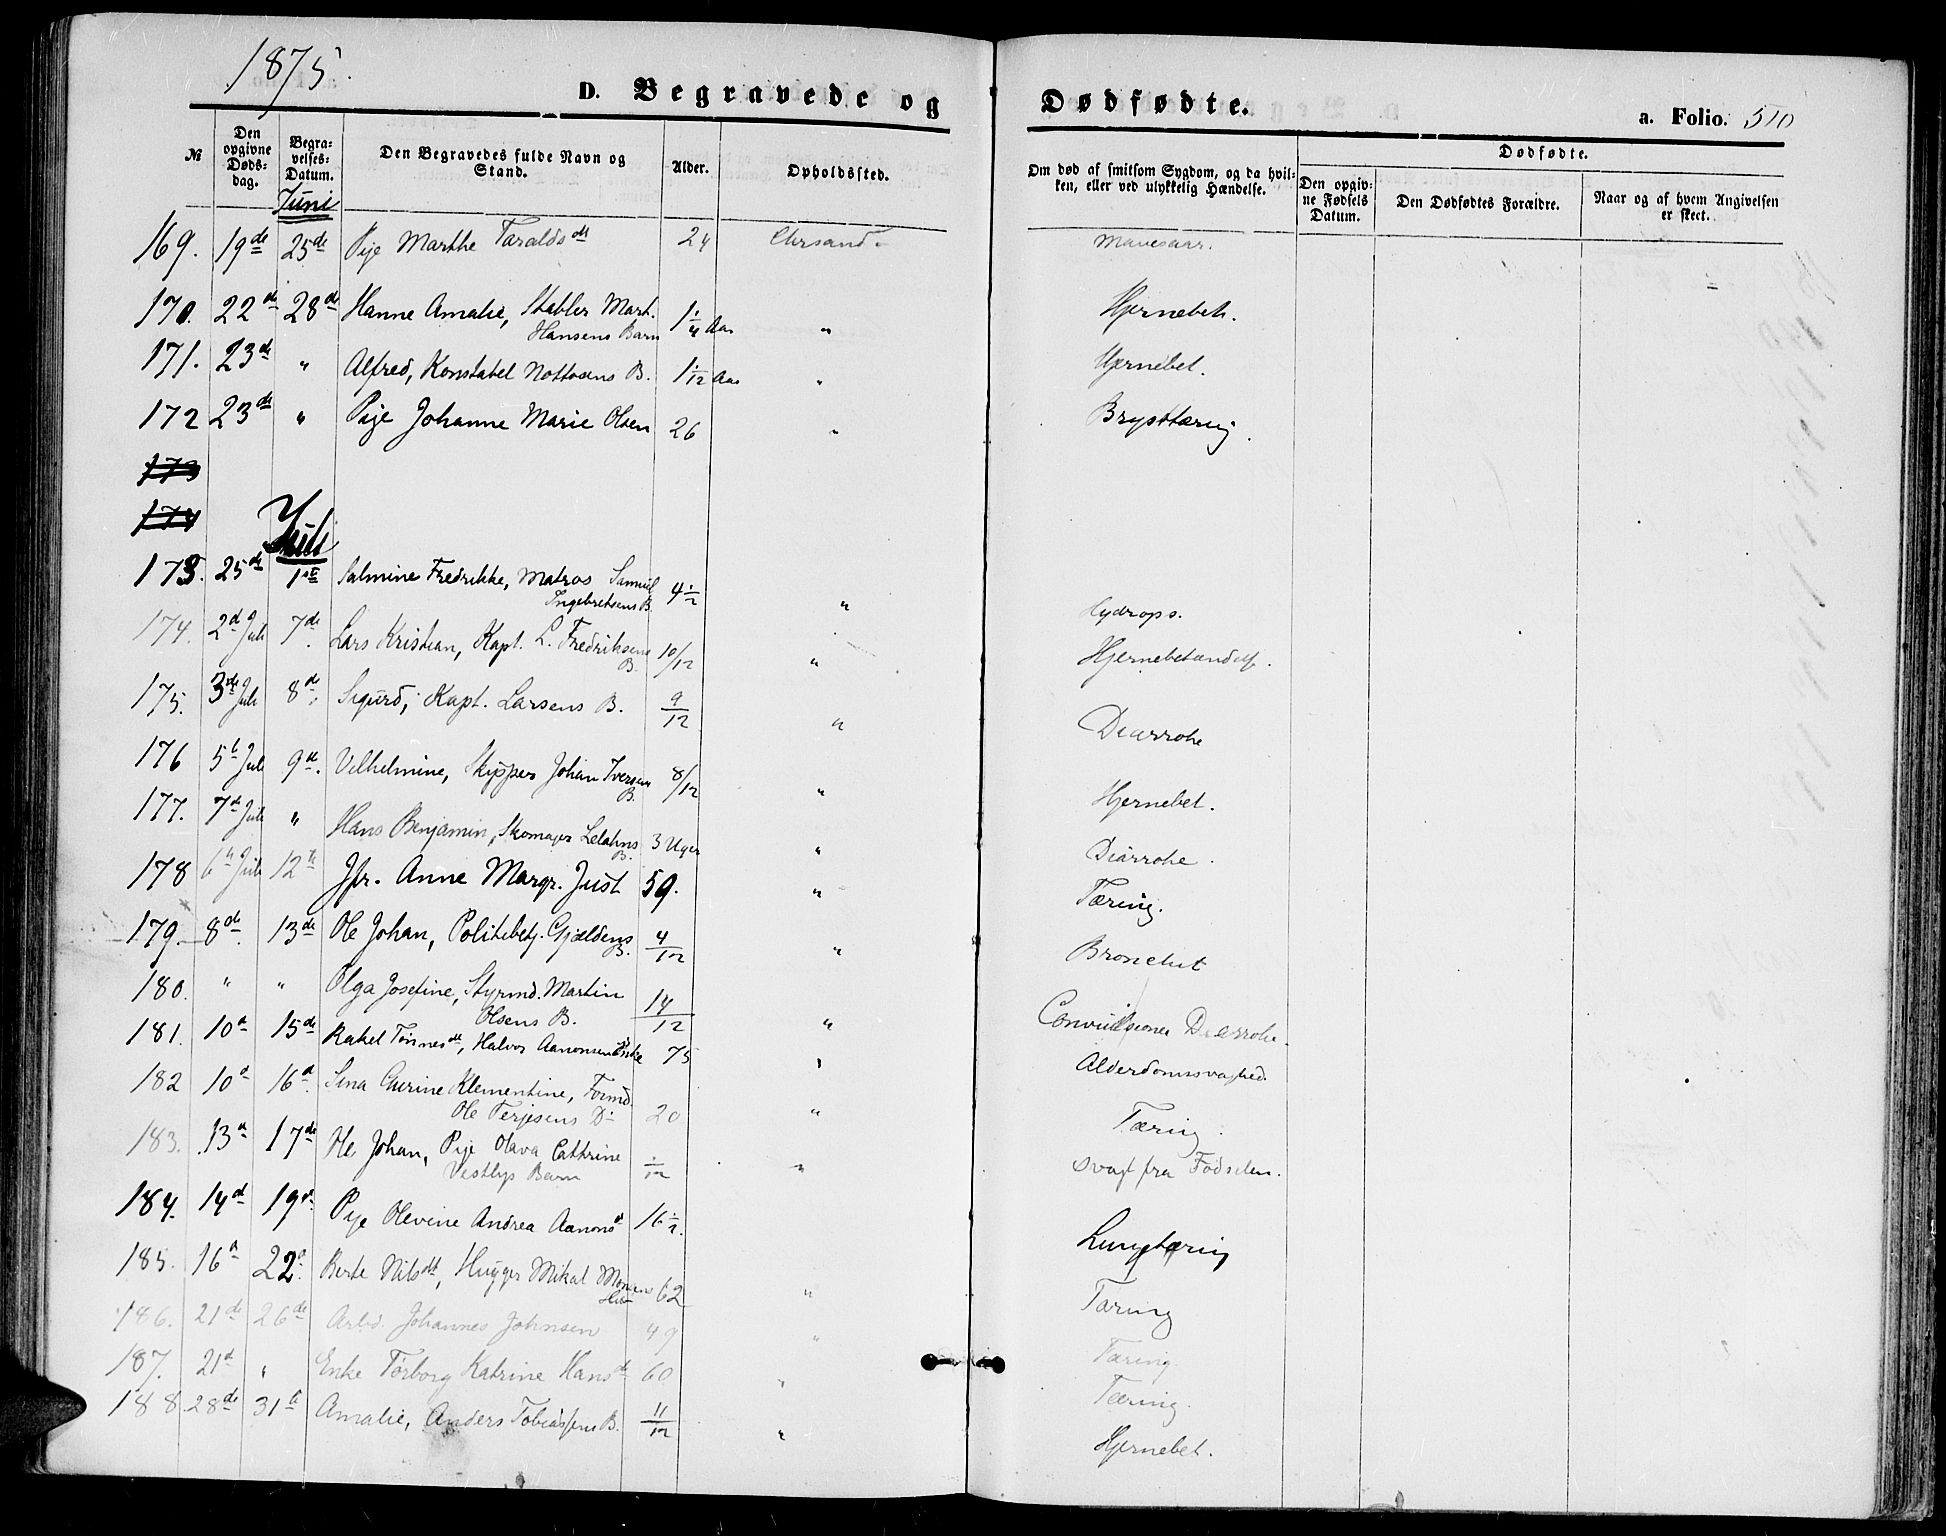 1875.
D. Begravede og Dødfødte.
a. Folio. 510
№
Den opgivne Døds-dag.
Begra-velses-Datum.
Den Begravedes fulde Navn og Stand.
Alder.
Opholdssted.
Om død af smitsom Sygdom, og da hvil-ken, eller ved ulykkelig Hændelse.
Dødfødte.
Den opgiv-ne Fødsels Datum.
Den Dødfødtes Forældre.
Naar og af hvem Angivelsen er skeet.
Juni
169. 19de 25de Pige Marthe Taraldsdt 24 Chrsand. Mavesaar.
170. 22de 28de Hanne Amalie, Stabler Mart. 1 1/4 Aar " Hjernebet.
Hansens Barn
171. 23de " Alfred, Konstabel B. 1 1/12 Aar " Hjernebet.
172 23de " Pige Johanne Marie Olsen 26 " Brysttæring.
173
174
Juli
173. 25de 1ste Salmine Fredrikke, Matros Samuel 4 1/2 " Hydrops.
Ingebretsens B.
174. 2d Juli 7de Lars Kristian, Kapt. L. Fredriksens 10/12 " Hjernebetændelse.
B.
175. 3de Juli 8de Sigurd, Kapt. Larsens B. 9/12 " Diarrohe
176 5t Juli 9de Vilhelmine, Skipper Johan Iversens 8/12 " Hjernebet.
B.
177. 7de Juli " Hans Benjamin, Skomager 3 Uger " Diarrohe.
B.
178 6te Juli 12te Jfr. Anne Margr. Just 59. " Tæring.
179. 8de 13de Ole Johan, Politibetj. Gjeldens 4/12 " Bronchit
B.
180. " " Olga Josefine, Styrmd. Martin 14/12 " Convulsioner Diarrohe.
Olsens B.
181. 10d 15de Rakel Tønnesdt, Halvor Aanonsens Enke 75 " Alderdomssvaghed
182 10d 16d Sina Gurine Klementine, Formd. 20 " Tæring.
Ole Terjesens D.
183. 13d 17de Ole Johan, Pige Olava Cathrine 1/12 " Svag fra Fødselen.
Vestbys Barn
184. 14d 19d. Pige Olevine Andrea Aanonsd 16 1/2. Lungetæring
185. 16d 22d Berte Nilsdt, Hugger Mikal Monsens 62 " Tæring
Hustru
186. 21de 26de Arbd. Johannes Johnsen 49 " Tæring.
187. 21d " Enke Tørborg Katrine Hansdt 60 " Tæring.
188. 28de 31te Amalie, Anders Tobiassens B. 11/12 " Hjernebet.